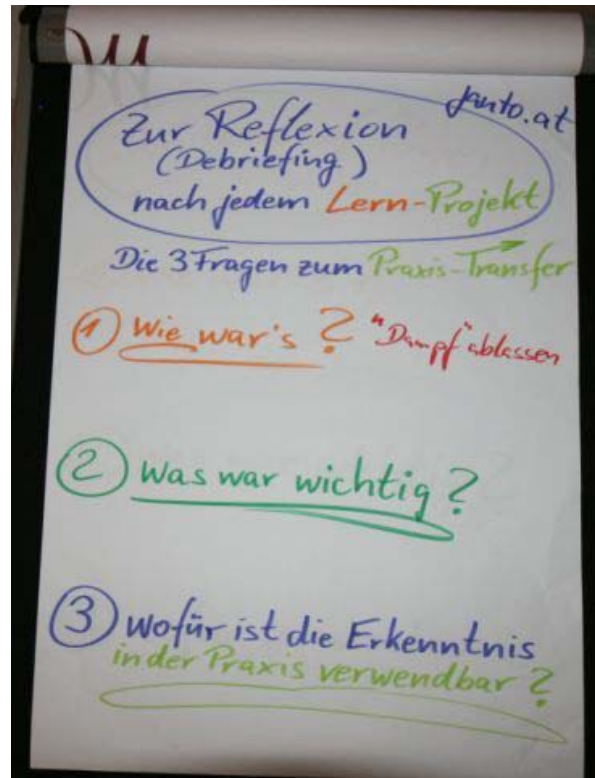 janto.at
Zur Reflexion
(Debriefing)
nach jedem Lern-Projekt
Die 3 Fragen zum Praxis-Transfer
1 Wie war's ? "Dampf" ablassen
2 was war wichtig ?
3 wofür ist die Erkenntnis
in der Praxis verwendbar ?